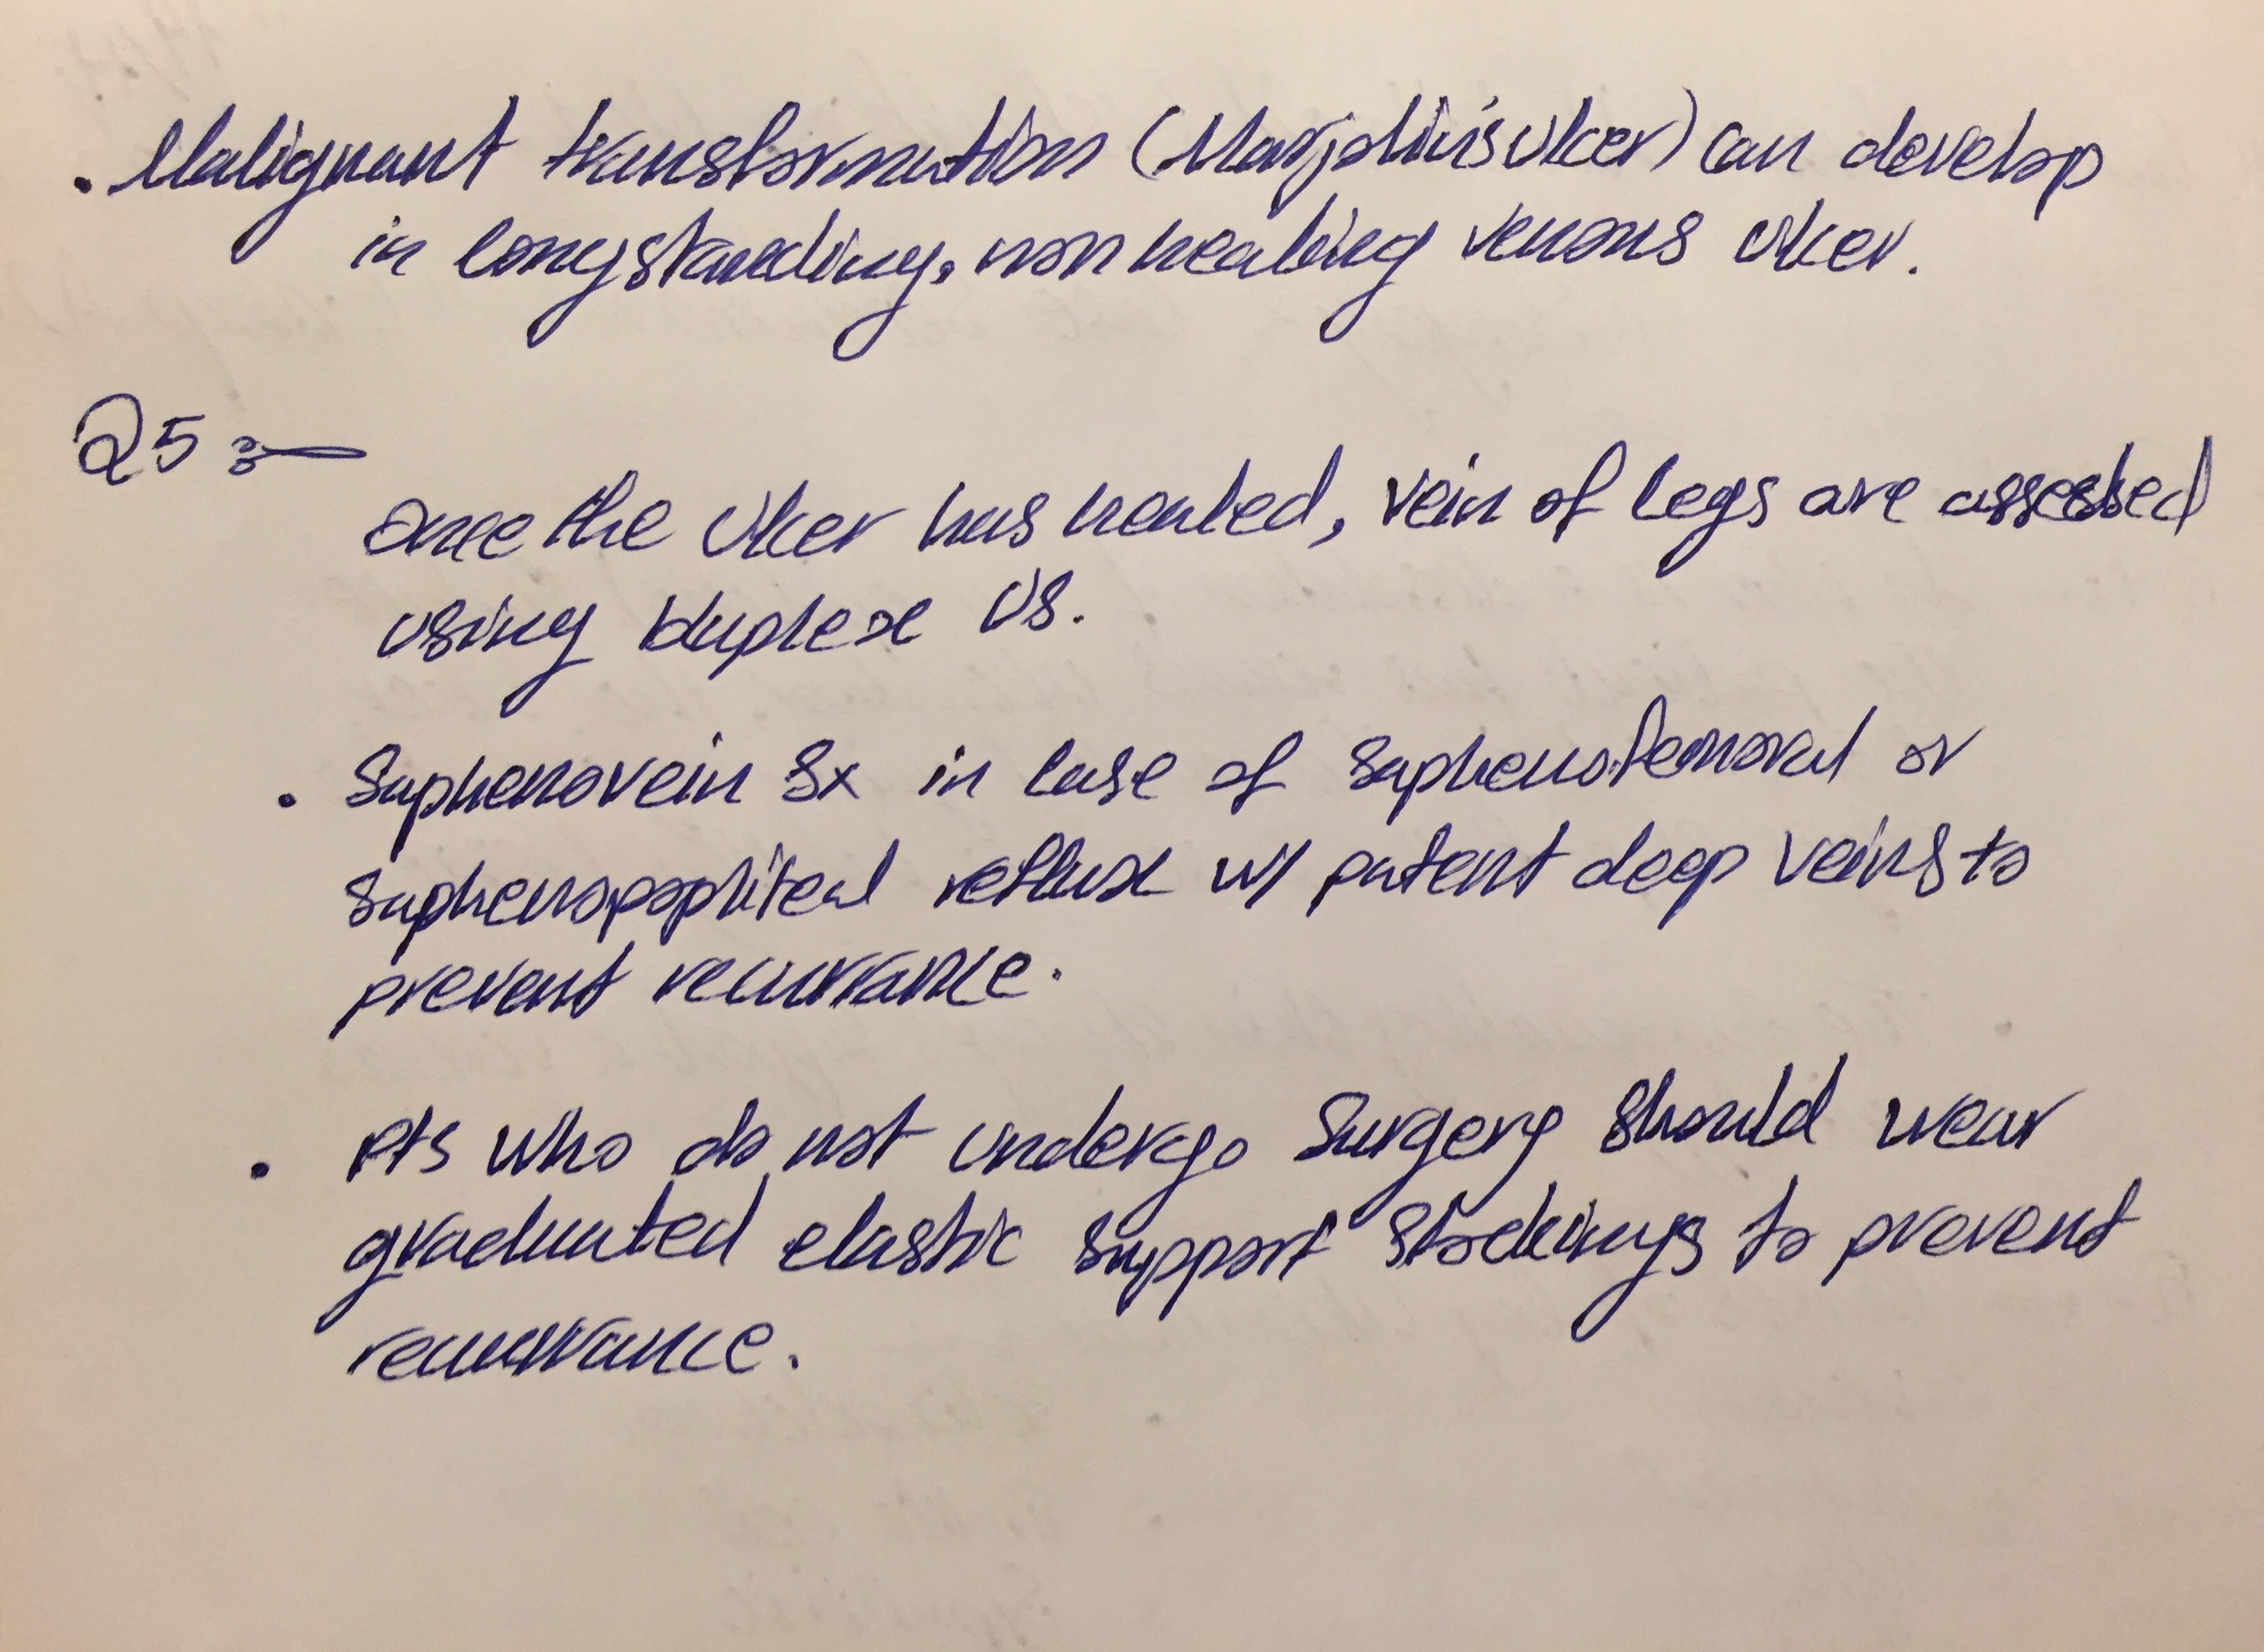 . Malignant transformation (Marjolin's ulcer) can develop
in longstanding, nonhealing venous ulcer.
Q5 :-
once the ulcer has healed, vein of legs are assessed
using duplex US.
. Saphenovein Sx in case of saphenofemoral or
saphenopopliteal reflux w/ patent deep veins to
prevent recurrance.
. Pts who do not undergo surgery should wear
graduated elastic support stockings to prevent
recurrance.